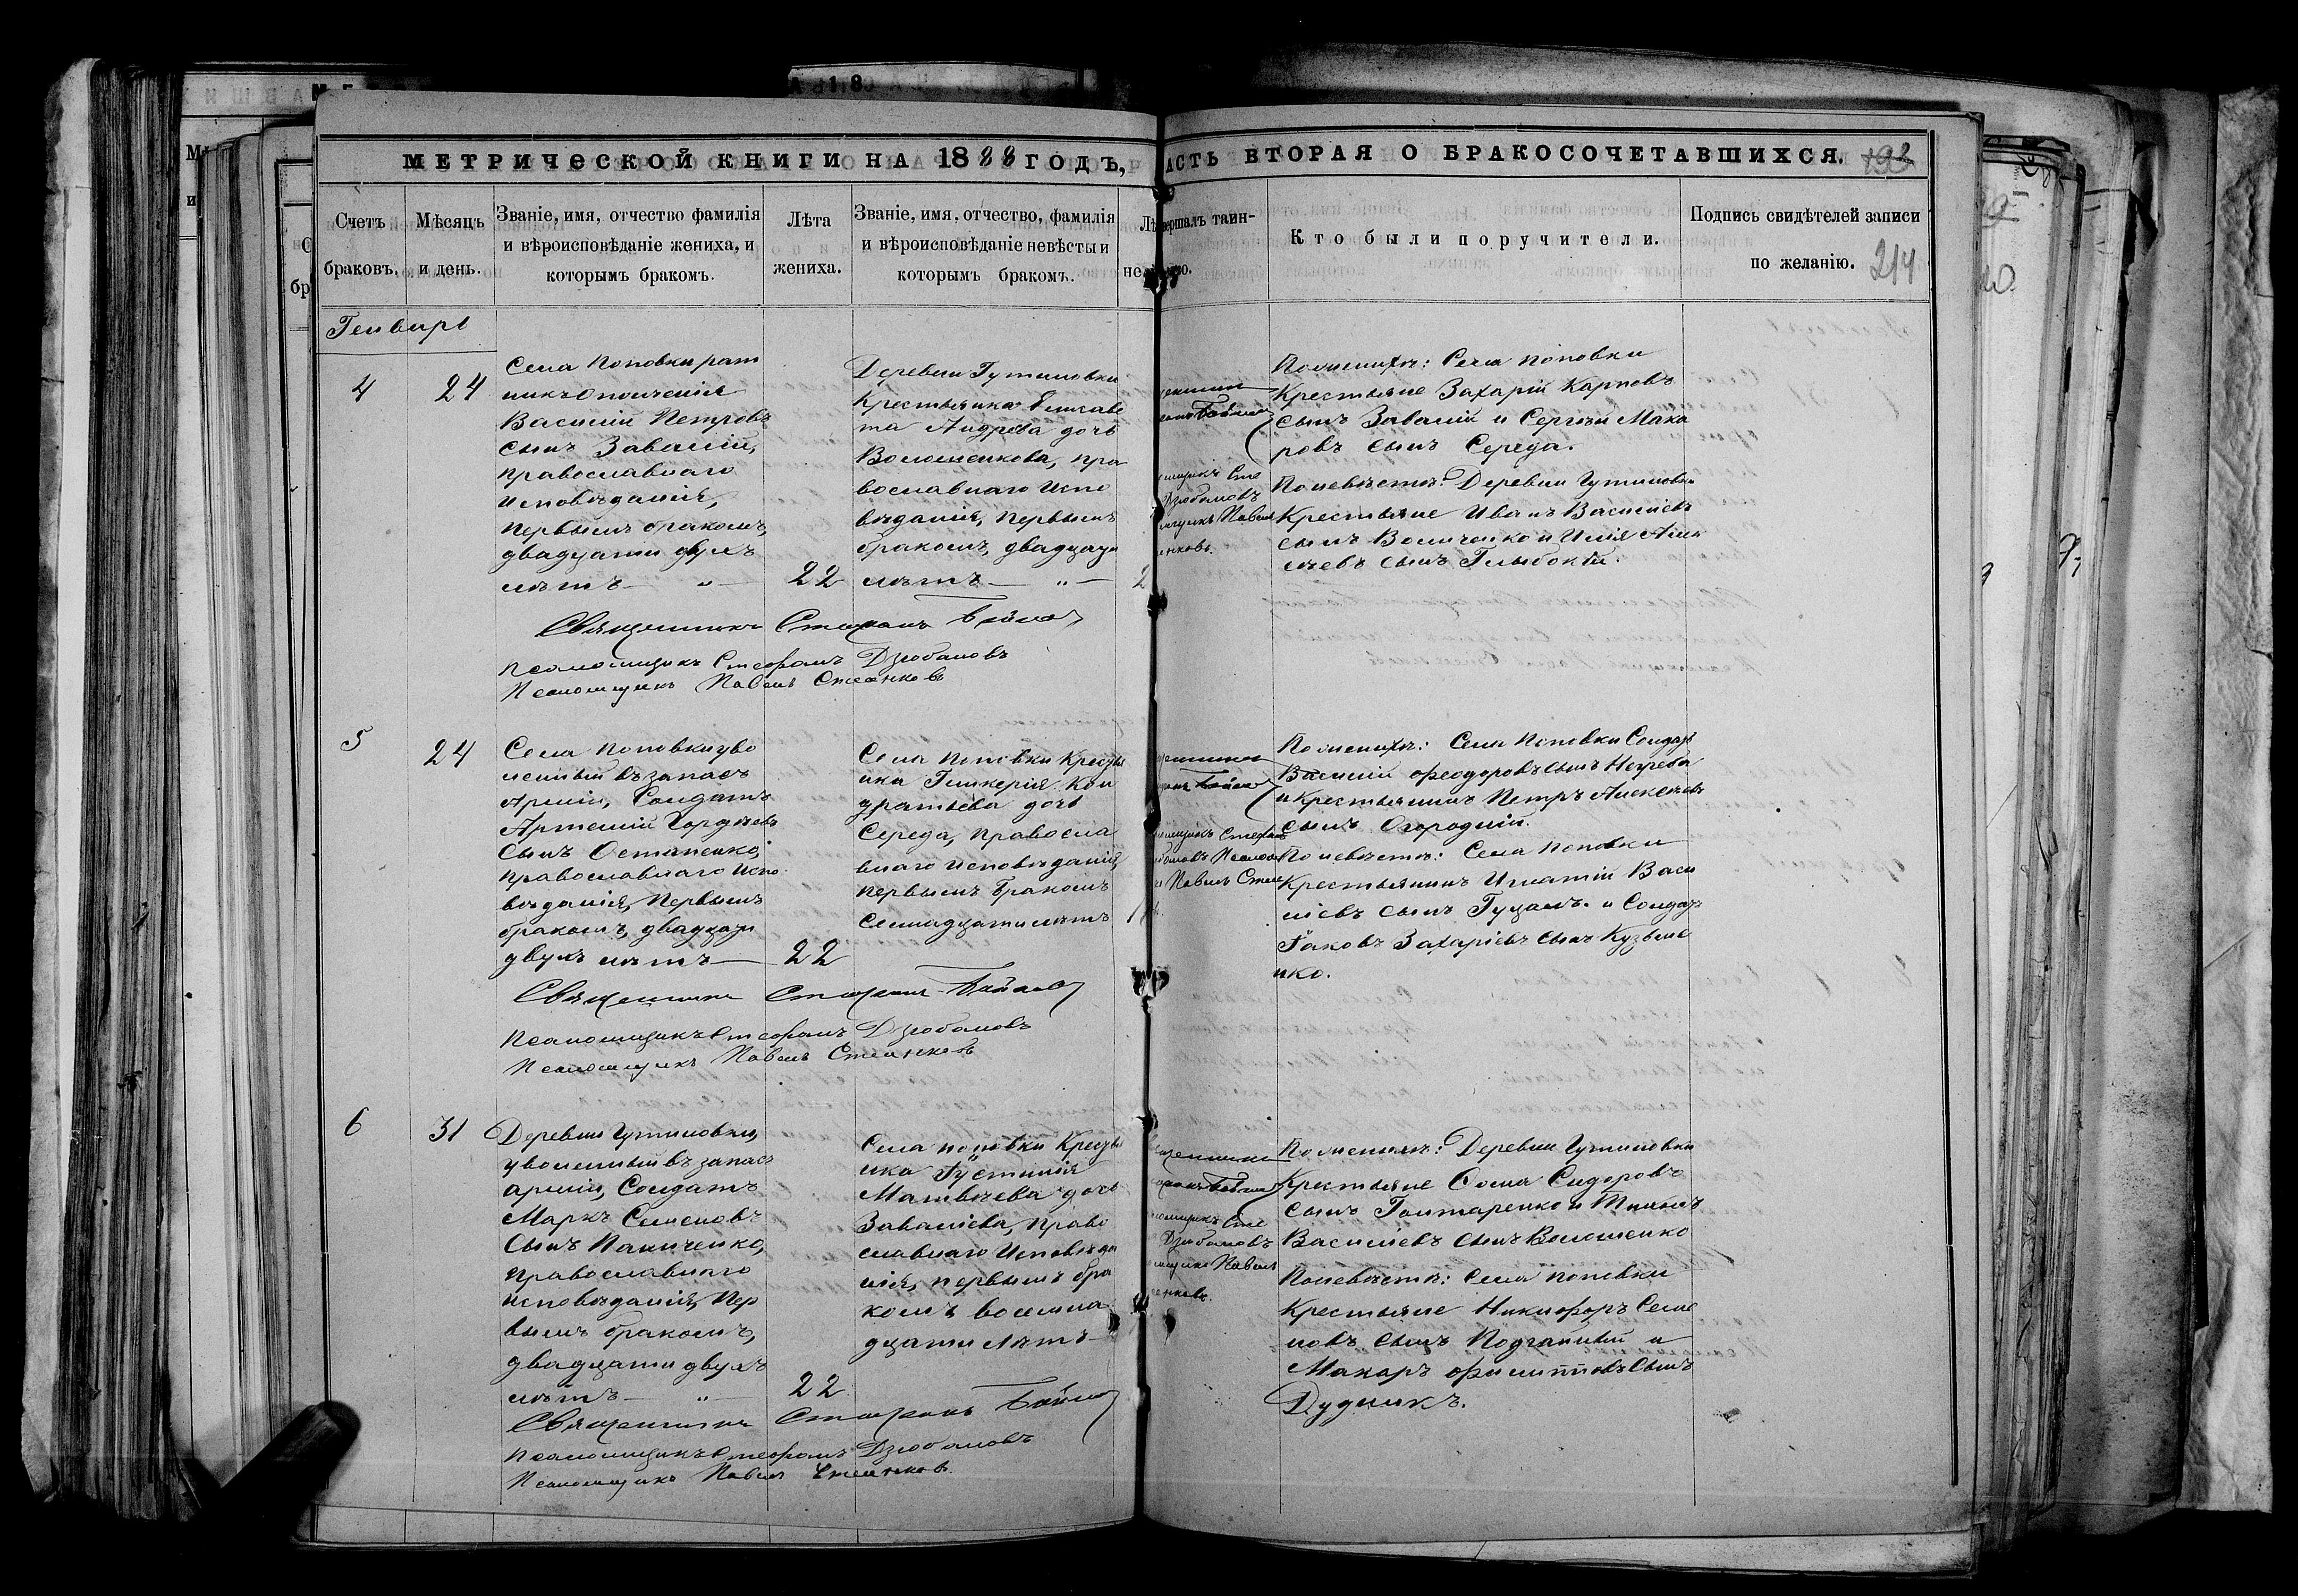 МЕТРИЧЕСКОЙ КНИГИ НА 1888 ГОДЪ,
АСТЬ ВТОРАЯ О БРАКОСОЧЕТАВШИХСЯ.
214
Счетъ браковъ.
Мѣсяцъ и день.
Званіе, имя, отчество фамилія
и вѣроисповѣданіе жениха, и
которымъ бракомъ.
Лѣта
жениха.
Званіе, имя, отчество, фамилія
и вѣроисповѣданіе невѣсты и
которымъ бракомъ.
вершалъ таин-
Кто были поручители.
Подпись свидѣтелей записи
по желанію.
Генварь
4
24
Села Поповки рат
никъ ополченія
Василій Петровъ
сынъ Завалій,
православнаго
исповѣданія,
первымъ бракомъ,
двадцати двухъ
лѣтъ — " —
22
Деревни Гутиловки
крестьянка Елисаве
та Андрева дочь
Волошенкова, пра
вославнаго испо
вѣданія, первымъ
бракомъ, двадцати
лѣтъ — " —
2
Дзюбановъ
По женихѣ: Села Поповки
Крестьяне Захарій Карповъ
сынъ Завалій и Сергѣй Мака
ровъ сынъ Середа.
По невѣстѣ: Деревни Гутиловки
Крестьяне Иванъ Васильевъ
сынъ
Священникъ Стефанъ
Псаломщикъ Стефанъ Дзюбановъ
Псаломщикъ Павелъ
5
24
Села Поповки уво
ленный въ запасъ
Арміи, Солдатъ
Артемій Гордѣевъ
сынъ Остапенко,
православнаго испо
вѣданія, первымъ
бракомъ, двадцати
двухъ лѣтъ —
22
Села Поповки Крестья
нка Гликерія Кон
дратьева дочь
Середа, правосла
внаго исповѣданія,
первымъ бракомъ
семнадцати лѣтъ
По женихѣ: Села Поповки Солдатъ
Василій Феодоровъ сынъ Негреба
и Крестьянинъ Петръ Алексѣевъ
сынъ Огородній.
По невѣстѣ: Села Поповки
Крестьянинъ Игнатій Васи
ліевъ сынъ Гуцалъ. и Солдатъ
Іаковъ Захаріевъ сынъ Кузьме
нко.
Священникъ Стефанъ
Псаломщикъ Стефанъ Дзюбановъ
Псаломщикъ Павелъ
6
31
Деревни Гутиловки,
уволенный въ запасъ
арміи, Солдатъ
Маркъ Семеновъ
сынъ Паниченко,
православнаго
исповѣданія, пер
вымъ бракомъ,
двадцати двухъ
лѣтъ — " —
22
Села Поповки Крестья
нка Іустинія
Матвѣева дочь
Заваліева, право
славнаго исповѣда
нія, первымъ бра
комъ восемна
дцати лѣтъ
Дзюбановъ
По женихѣ: Деревни Гутиловки
Крестьяне Фома Сидоровъ
сынъ Гонтаренко и
Василіевъ сынъ Волошенко
По невѣстѣ: Села Поповки
Крестьяне Никифоръ Семе
новъ сынъ и
Макаръ Филипповъ сынъ
Дудникъ.
Священникъ Стефанъ
Псаломщикъ Стефанъ Дзюбановъ
Псаломщикъ Павелъ